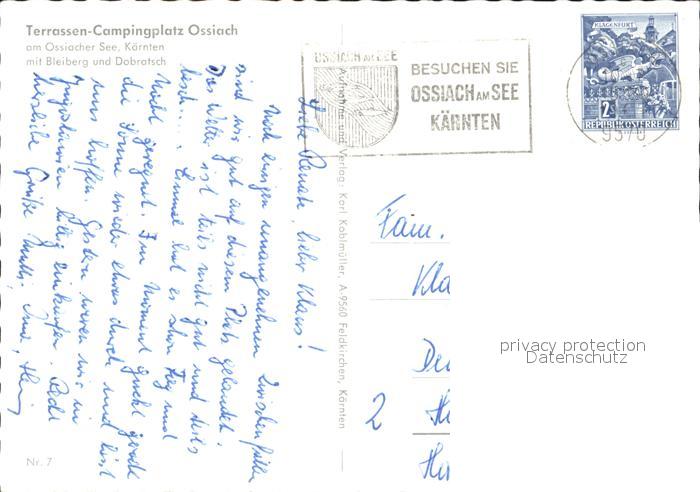 Terrassen-Campingplatz Ossiach
am Ossiacher See, Kärnten
mit Bleiberg und Dobratsch
OSSIACH AM SEE
BESUCHEN SIE
OSSIACH AM SEE
KÄRNTEN
KLAGENFURT
2S
REPUBLIK ÖSTERREICH
9570
Liebe Renate, lieber Klaus!
Nach einigen unangenehmen Zwischenfällen
sind wir gut auf diesem Platz gelandet.
Das Wetter ist teils nicht gut und teils
Einmal hat es schon Tag und
Nacht geregnet. Im Moment guckt gerade
die Sonne wieder etwas durch und läßt
uns hoffen. Gestern waren wir in
Jugoslawien billig einkaufen. Recht
herzliche Grüße Mutti,
Aufnahme und Verlag: Karl Kohlmüller, A-9560 Feldkirchen, Kärnten
Fam.
Kla
2
privacy protection
Datenschutz
Nr. 7